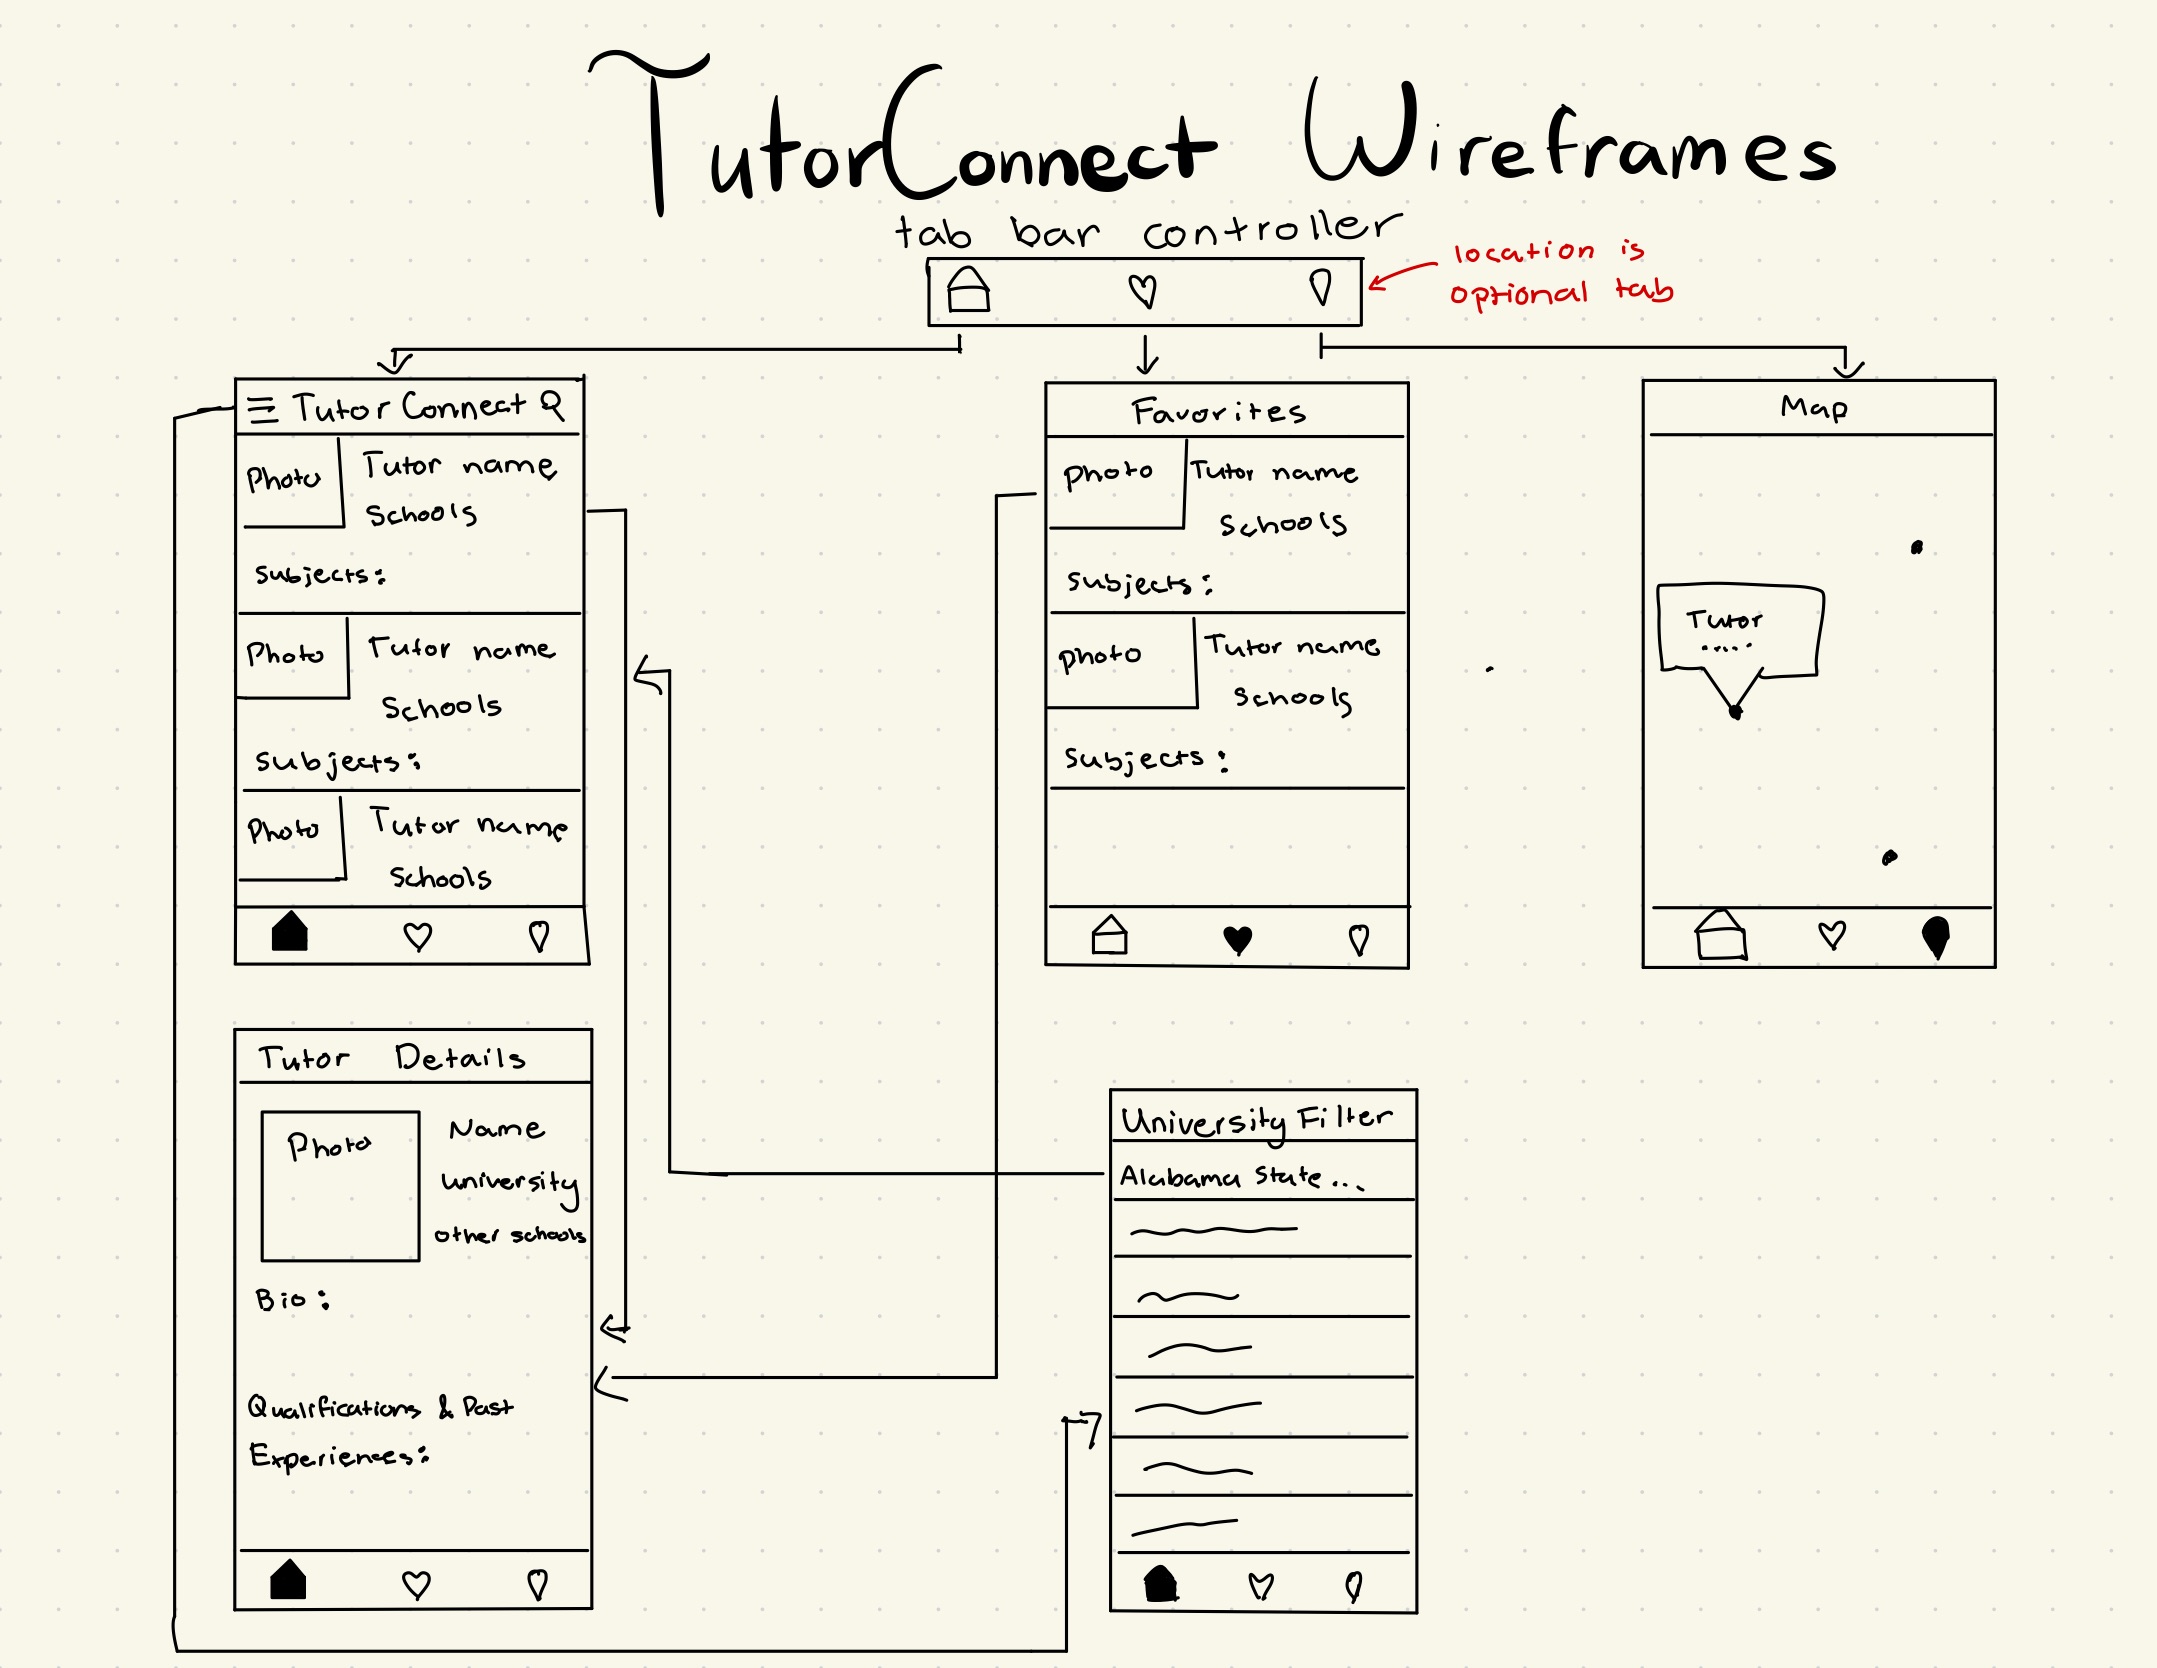 TutorConnect Wireframes
tab bar controller
location is
optional tab
TutorConnect
Photo
Tutor name
Schools
Subjects:
Photo
Tutor name
Schools
Subjects:
Photo
Tutor name
Schools
Favorites
photo
Tutor name
Schools
Subjects:
photo
Tutor name
Schools
Subjects:
Map
Tutor
....
Tutor Details
Photo
Name
university
other schools
Bio:
Qualifications & Past
Experiences:
University Filter
Alabama State...